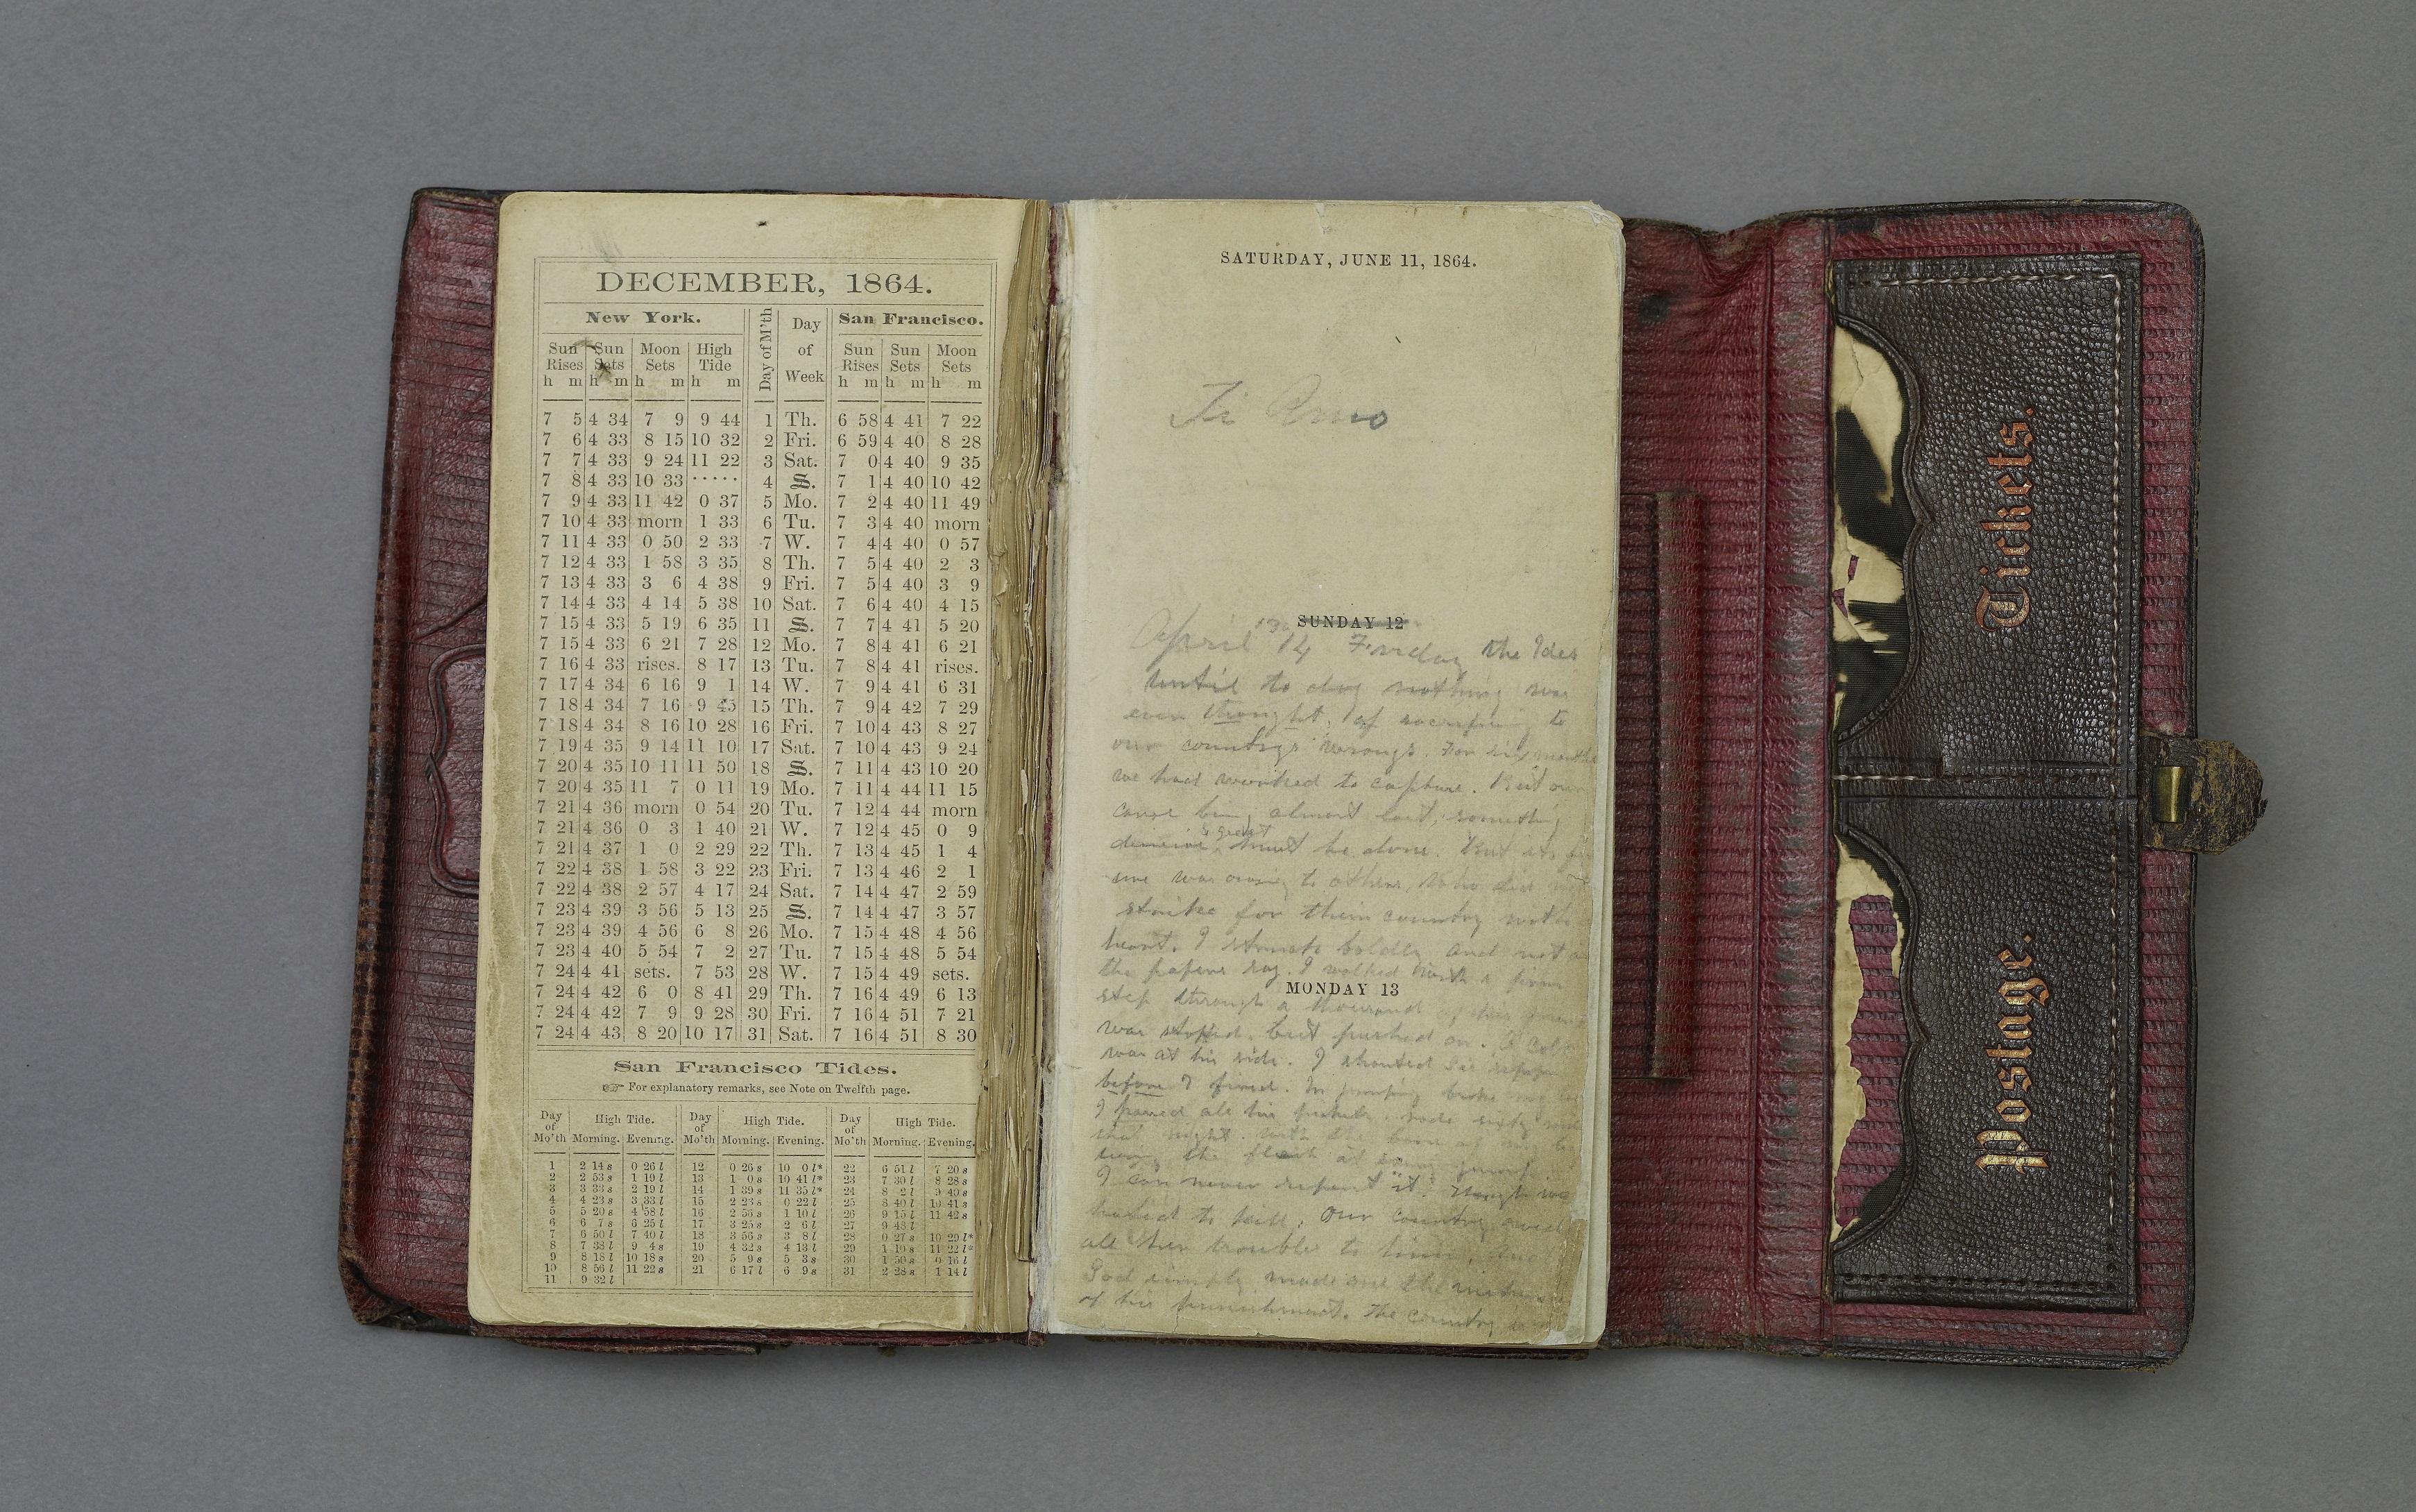 DECEMBER, 1864.
New York. Day of M'th Day of Week San Francisco.
Sun Rises Sun Sets Moon Sets High Tide Sun Rises Sun Sets Moon Sets
h m h m h m h m h m h m h m
7 5 4 34 7 9 9 44 1 Th. 6 58 4 41 7 22
7 6 4 33 8 15 10 32 2 Fri. 6 59 4 40 8 28
7 7 4 33 9 24 11 22 3 Sat. 7 0 4 40 9 35
7 8 4 33 10 33 ..... 4 S. 7 1 4 40 10 42
7 9 4 33 11 42 0 37 5 Mo. 7 2 4 40 11 49
7 10 4 33 morn 1 33 6 Tu. 7 3 4 40 morn
7 11 4 33 0 50 2 33 7 W. 7 4 4 40 0 57
7 12 4 33 1 58 3 35 8 Th. 7 5 4 40 2 3
7 13 4 33 3 6 4 38 9 Fri. 7 5 4 40 3 9
7 14 4 33 4 14 5 38 10 Sat. 7 6 4 40 4 15
7 15 4 33 5 19 6 35 11 S. 7 7 4 41 5 20
7 15 4 33 6 21 7 28 12 Mo. 7 8 4 41 6 21
7 16 4 33 rises. 8 17 13 Tu. 7 8 4 41 rises.
7 17 4 34 6 16 9 1 14 W. 7 9 4 41 6 31
7 18 4 34 7 16 9 45 15 Th. 7 9 4 42 7 29
7 18 4 34 8 16 10 28 16 Fri. 7 10 4 43 8 27
7 19 4 35 9 14 11 10 17 Sat. 7 10 4 43 9 24
7 20 4 35 10 11 11 50 18 S. 7 11 4 43 10 20
7 20 4 35 11 7 0 11 19 Mo. 7 11 4 44 11 15
7 21 4 36 morn 0 54 20 Tu. 7 12 4 44 morn
7 21 4 36 0 3 1 40 21 W. 7 12 4 45 0 9
7 21 4 37 1 0 2 29 22 Th. 7 13 4 45 1 4
7 22 4 38 1 58 3 22 23 Fri. 7 13 4 46 2 1
7 22 4 38 2 57 4 17 24 Sat. 7 14 4 47 2 59
7 23 4 39 3 56 5 13 25 S. 7 14 4 47 3 57
7 23 4 39 4 56 6 8 26 Mo. 7 15 4 48 4 56
7 23 4 40 5 54 7 2 27 Tu. 7 15 4 48 5 54
7 24 4 41 sets. 7 53 28 W. 7 15 4 49 sets.
7 24 4 42 6 0 8 41 29 Th. 7 16 4 49 6 13
7 24 4 42 7 9 9 28 30 Fri. 7 16 4 51 7 21
7 24 4 43 8 20 10 17 31 Sat. 7 16 4 51 8 30
San Francisco Tides.
☞ For explanatory remarks, see Note on Twelfth page.
Day of Mo'th High Tide. Day of Mo'th High Tide. Day of Mo'th High Tide.
Morning. Evening. Morning. Evening. Morning. Evening.
1 2 14 s 0 26 l 12 0 26 s 10 0 l* 22 6 51 l 7 20 s
2 2 53 s 1 19 l 13 1 0 s 10 41 l* 23 7 30 l 8 28 s
3 3 33 s 2 19 l 14 1 39 s 11 35 l* 24 8 2 l 9 49 s
4 4 23 s 3 33 l 15 2 23 s 0 22 l 25 8 40 l 10 41 s
5 5 20 s 4 58 l 16 2 56 s 1 10 l 26 9 15 l 11 42 s
6 6 7 s 6 25 l 17 3 25 s 2 6 l 27 9 48 l
7 6 50 l 7 40 l 18 3 56 s 3 8 l 28 0 27 s 10 29 l*
8 7 38 l 9 4 s 19 4 32 s 4 13 l 29 1 10 s 11 22 l*
9 8 18 l 10 18 s 20 5 9 s 5 3 s 30 1 50 s 0 16 l
10 8 56 l 11 22 s 21 6 17 l 6 9 s 31 2 28 s 1 14 l
11 9 32 l
SATURDAY, JUNE 11, 1864.
Ti Amo
SUNDAY 12
April 13 14 Friday the Ides
Until to day nothing was
ever thought of sacrificing to
our country's wrongs. For six months
we had worked to capture. But our
cause being almost lost, something
decisive & great must be done. But its
was owing to others, who did
strike for their country with
heart. I struck boldly and not
the papers say. I walked with a firm
MONDAY 13
step through a thousand of his
was stopped, but pushed on. A Col
was at his side. I shouted Sic semper
before I fired. In jumping broke my
I passed all his pickets, rode sixty
that night, with the bone of my
the flesh at every jump
I can never repent it, though we
hated to kill; Our country owed
all her troubles to him, and
God simply made me the
of his punishment. The country
Tickets.
Postage.